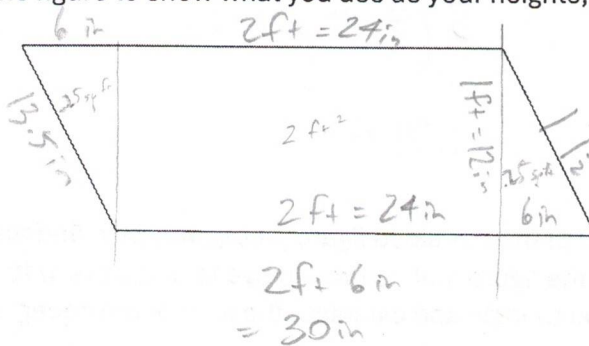 figure to show what you use as your heights,
6 in 2ft = 24in
13.5 in
.25 sq ft
2 ft²
1ft = 12in
.25 sq ft
2 ft = 24 in 6in
2ft 6 in
= 30 in